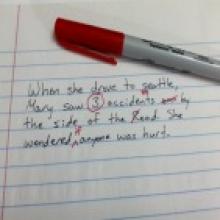 When she drove to seattle,
Mary saw 3 accidents by
the side of the Road. She
wondered, if anyone was hurt.